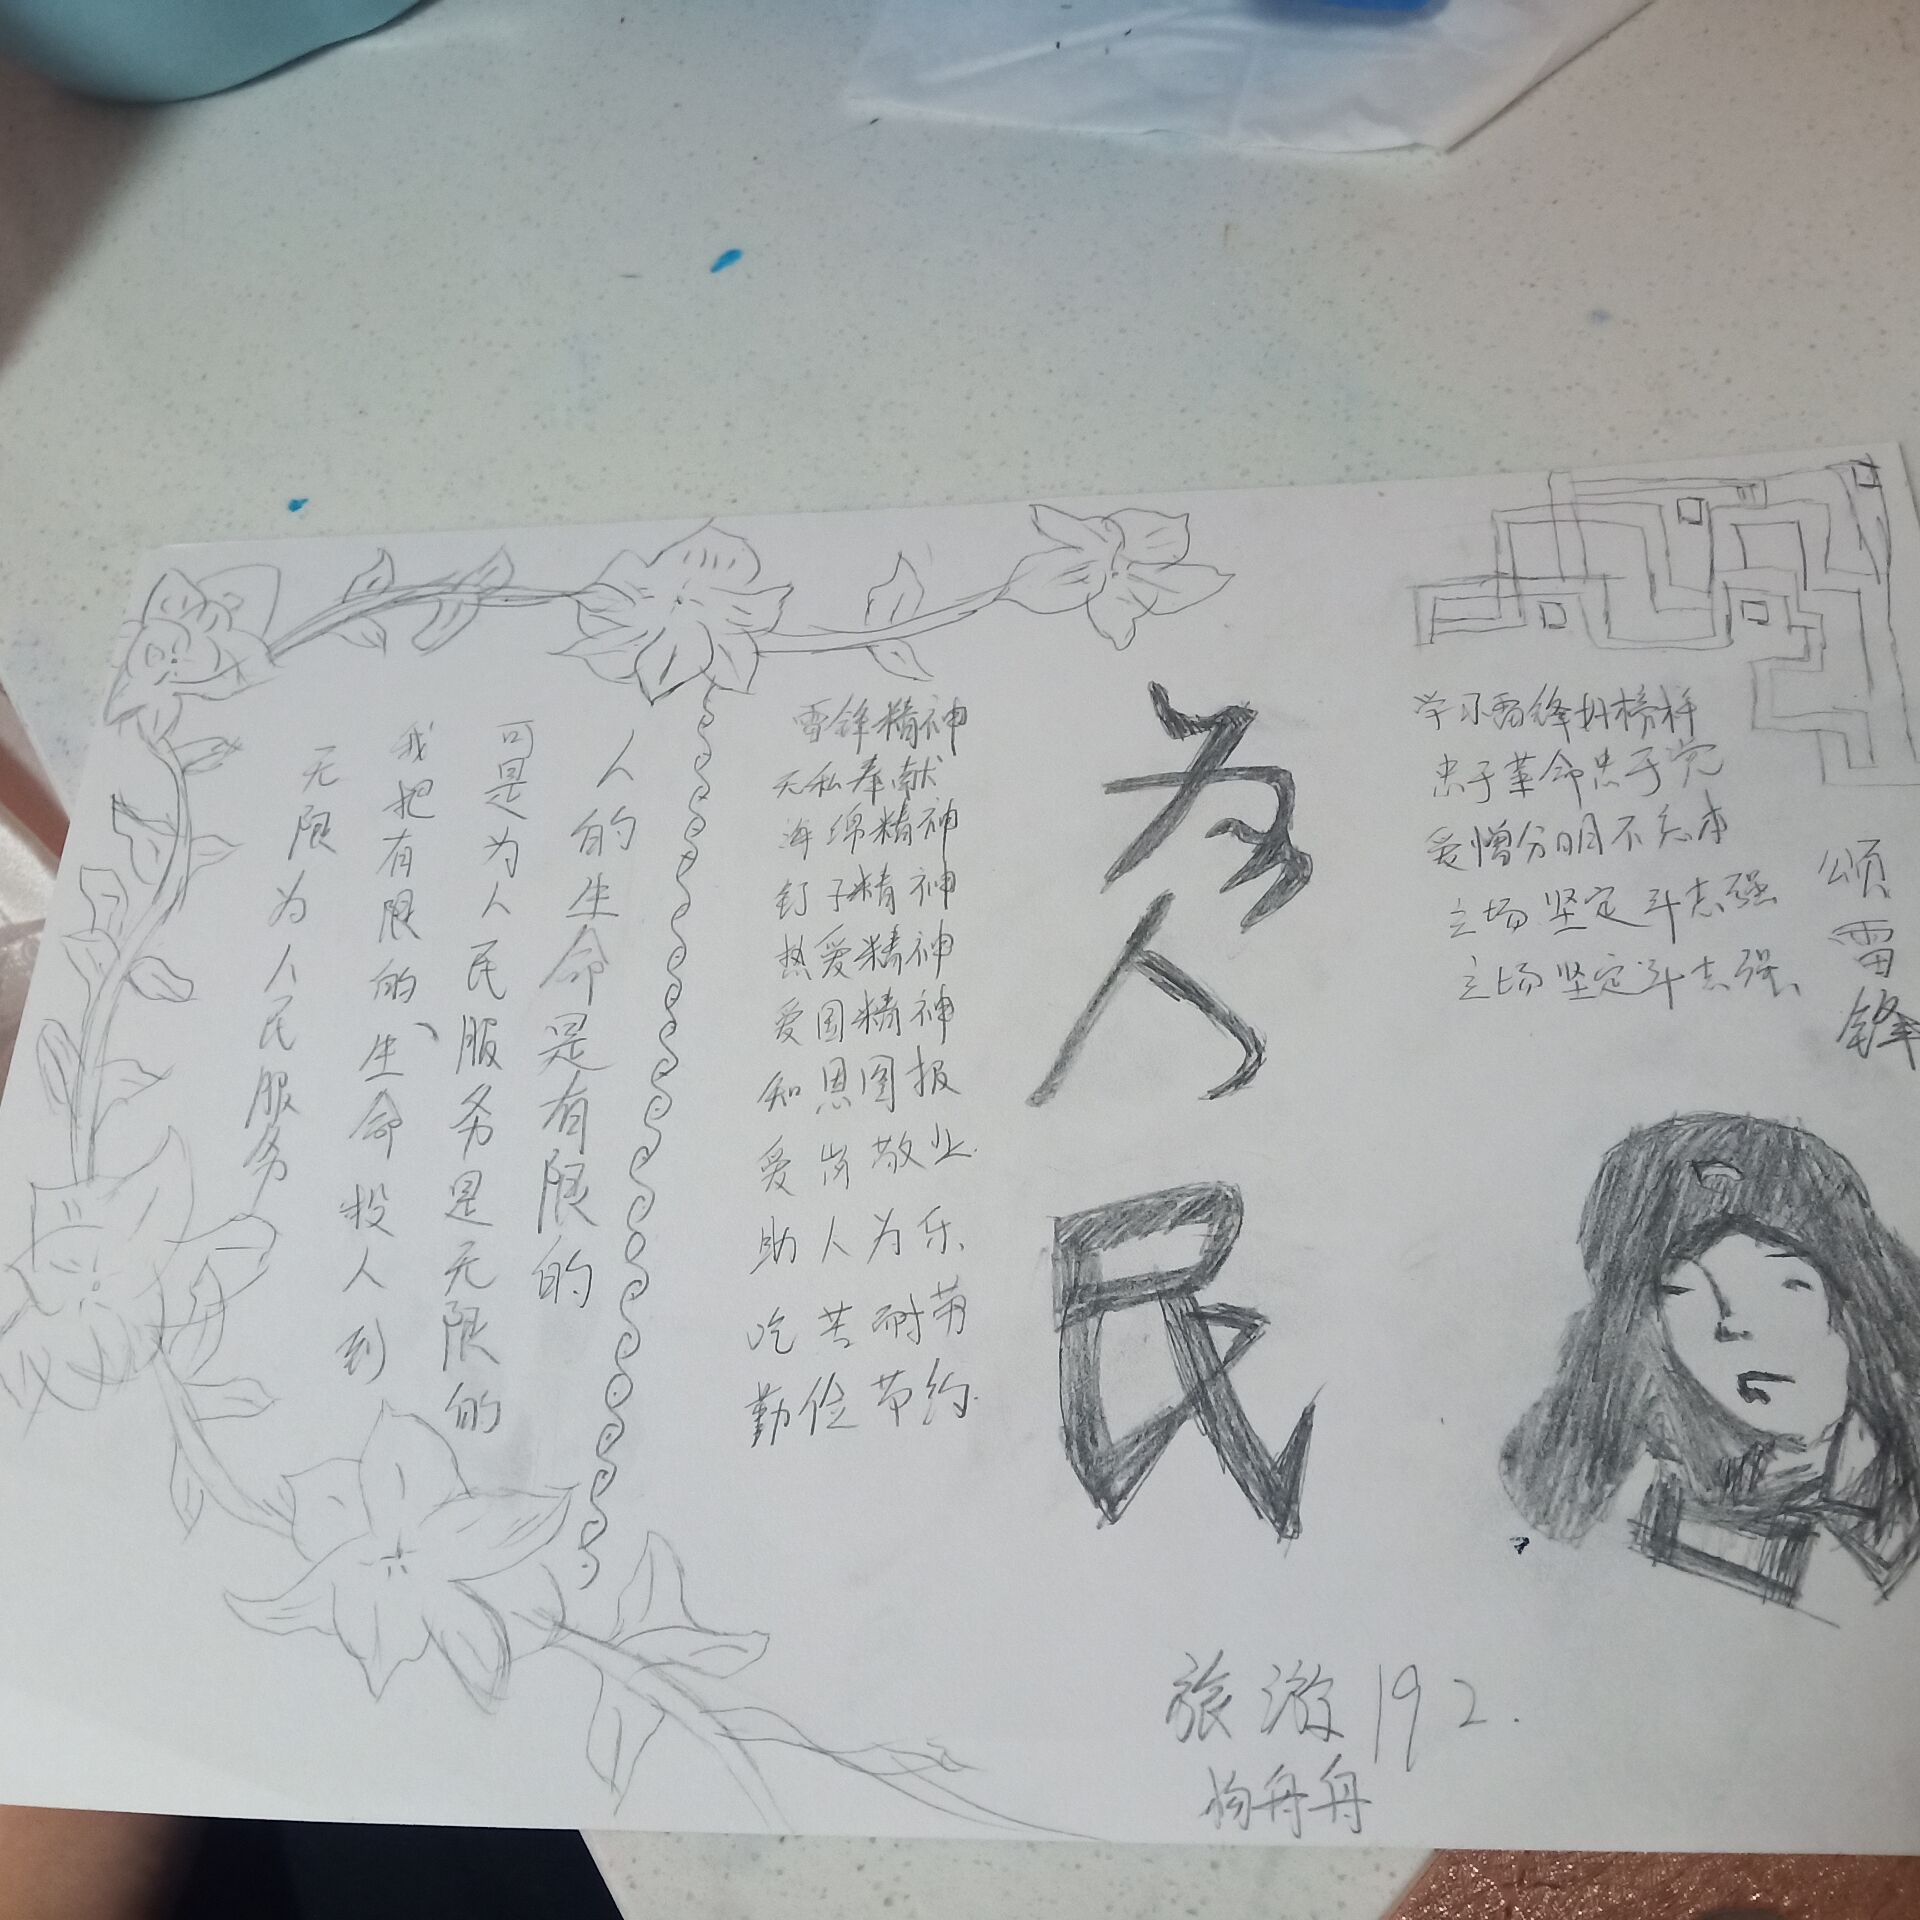 颂雷锋
学习雷锋好榜样
忠于革命忠于党
爱憎分明不忘本
立场坚定斗志强
立场坚定斗志强
为人民
雷锋精神
无私奉献
海绵精神
钉子精神
热爱精神
爱国精神
知恩图报
爱岗敬业
助人为乐
吃苦耐劳
勤俭节约
人的生命是有限的
可是为人民服务是无限的
我把有限的、生命投人到
无限为人民服务
旅游192.
杨舟舟